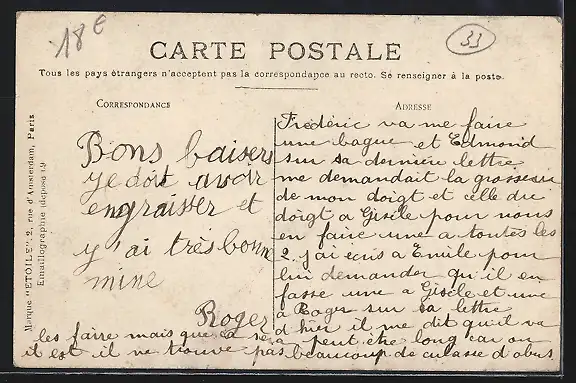 18e
33
CARTE POSTALE
Tous les pays étrangers n'acceptent pas la correspondance au recto. Se renseigner à la poste.
CORRESPONDANCE
ADRESSE
Marque "ETOILE", 2, rue d'Amsterdam, Paris
Emaillographie (déposé)
Bons baisers
je doit avoir
engraisser et
j'ai très bonne
mine
Roger
Frédéric va me faire
une bague et Edmond
sur sa dernière lettre
me demandait la grosseur
de mon doigt et celle du
doigt a Gisèle pour nous
en faire une a toutes les
2. j'ai écris a Emile pour
lui demander qu'il en
fasse une a Gisèle et une
a Roger sur sa lettre
d'hier il me dit qu'il va
les faire mais que ça sera peut être long car on
il est il ne trouve pas beaucoup de culasse d'obus